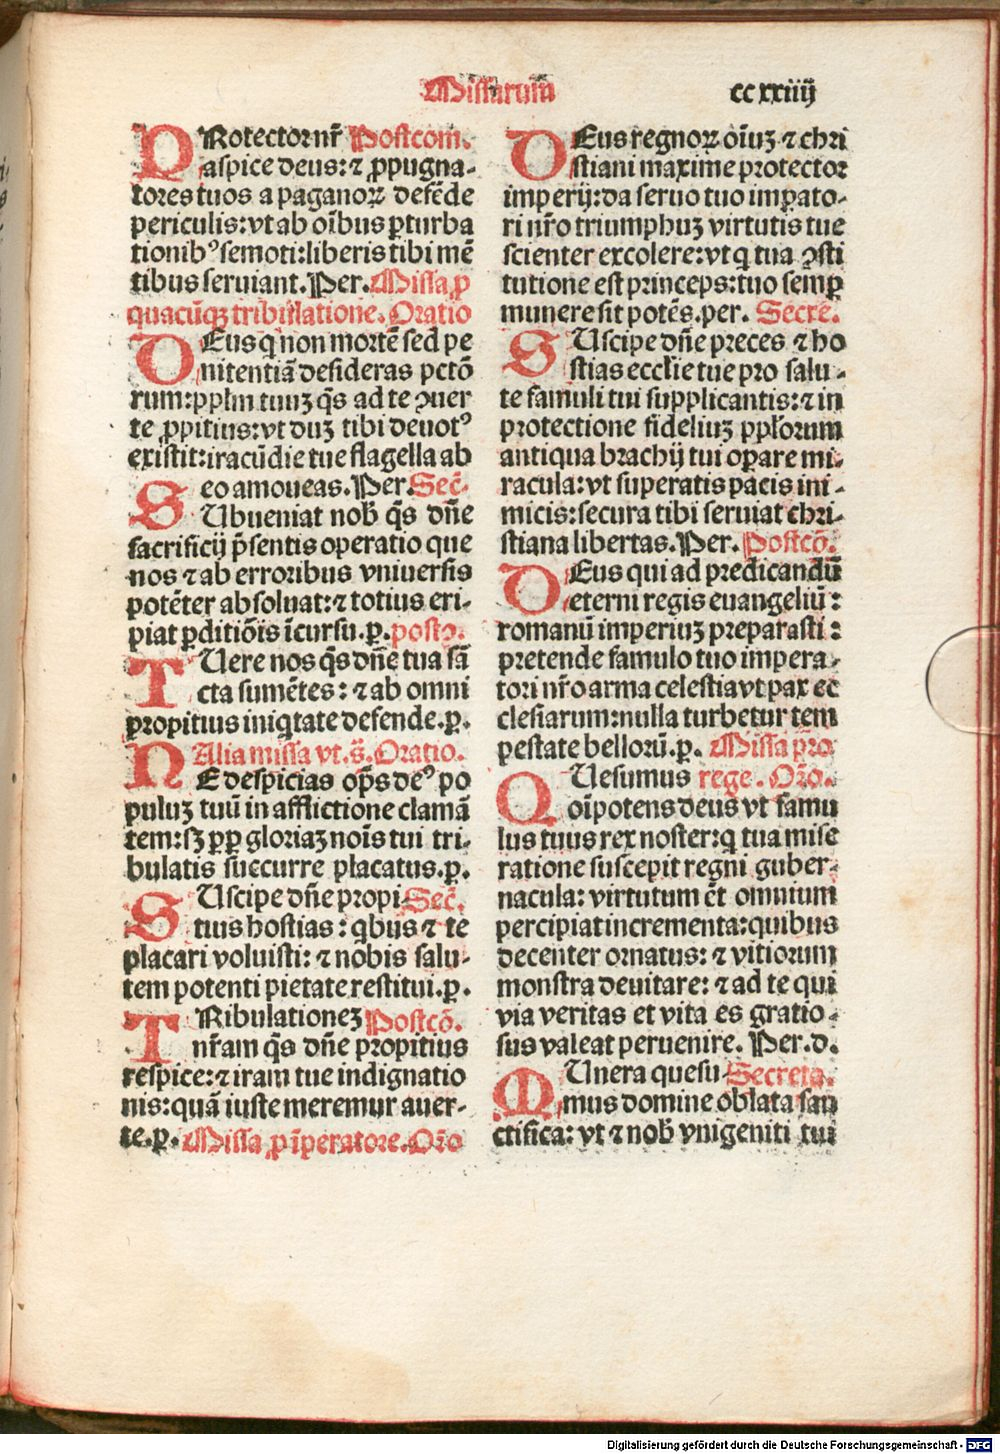 Missarum ccxxiiij
PRotector nr̄ Postcom.
aspice deus: ⁊ ꝓpugna-
tores tuos a paganoꝝ defẽde
periculis: vt ab oĩbus ꝑturba
tionibꝰ semoti: liberis tibi mẽ
tibus seruiant. Per. Missa ꝓ
quacũqꝫ tribulatione. Oratio
DEus q̇ non mortẽ sed pe
nitentiã desideras pctõ
rum: pplm tuuꝫ q̃s ad te ꝯuer
te ꝓpitius: vt duꝫ tibi deuotꝰ
existit: iracũdie tue flagella ab
eo amoueas. Per. Sec̃.
SUbueniat nob̃ q̃s dñe
sacrificij p̃sentis operatio que
nos ⁊ ab erroribus vniuersis
potẽter absoluat: ⁊ totius eri-
piat ꝑditiõis ĩcursu. p. postꝯ.
TUere nos q̃s dñe tua sã
cta sumẽtes: ⁊ ab omni
propitius iniq̇tate defende. p.
Alia missa vt. s̃. Oratio.
NE despicias op̃s deꝰ po
puluꝫ tuũ in afflictione clamã
tem: sꝫ ꝓpꝑ gloriaꝫ noĩs tui tri-
bulatis succurre placatus. p.
SUscipe dñe propi- Sec̃.
tius hostias: q̇bus ⁊ te
placari voluisti: ⁊ nobis salu-
tem potenti pietate restitui. p.
TRibulationeꝫ Postcõ.
nr̃am q̃s dñe propitius
respice: ⁊ iram tue indignatio
nis: quã iuste meremur auer-
te. p. Missa ꝓ ĩperatore. Orõ
DEus regnoꝝ oĩuꝫ ⁊ chri
stiani maxime protector
imperij: da seruo tuo imꝑato-
ri nr̃o triumphuꝫ virtutis tue
scienter excolere: vt q̇ tua ꝯsti
tutione est princeps: tuo semꝑ
munere sit potẽs. per. Secre.
SUscipe dñe preces ⁊ ho
stias eccl̃ie tue pro salu-
te famuli tui supplicantis: ⁊ in
protectione fideliuꝫ ppl̃orum
antiqua brachij tui oꝑare mi-
racula: vt superatis pacis ini-
micis: secura tibi seruiat chri-
stiana libertas. Per. Postcõ.
DEus qui ad predicandũ
eterni regis euangeliũ:
romanũ imperiuꝫ preparasti:
pretende famulo tuo impera-
tori nr̃o arma celestia vt pax ec
clesiarum: nulla turbetur tem
pestate bellorũ. p. Missa pro
QUesumus rege. Orõ.
oĩpotens deus vt famu
lus tuus rex noster: q̇ tua mise
ratione suscepit regni guber-
nacula: virtutum ẽt omnium
percipiat incrementa: quibus
decenter ornatus: ⁊ vitiorum
monstra deuitare: ⁊ ad te qui
via veritas et vita es gratio-
sus valeat peruenire. Per. d.
MUnera quesu- Secreta.
mus domine oblata san
ctifica: vt ⁊ nob̃ vnigeniti tui
Digitalisierung gefördert durch die Deutsche Forschungsgemeinschaft - DFG